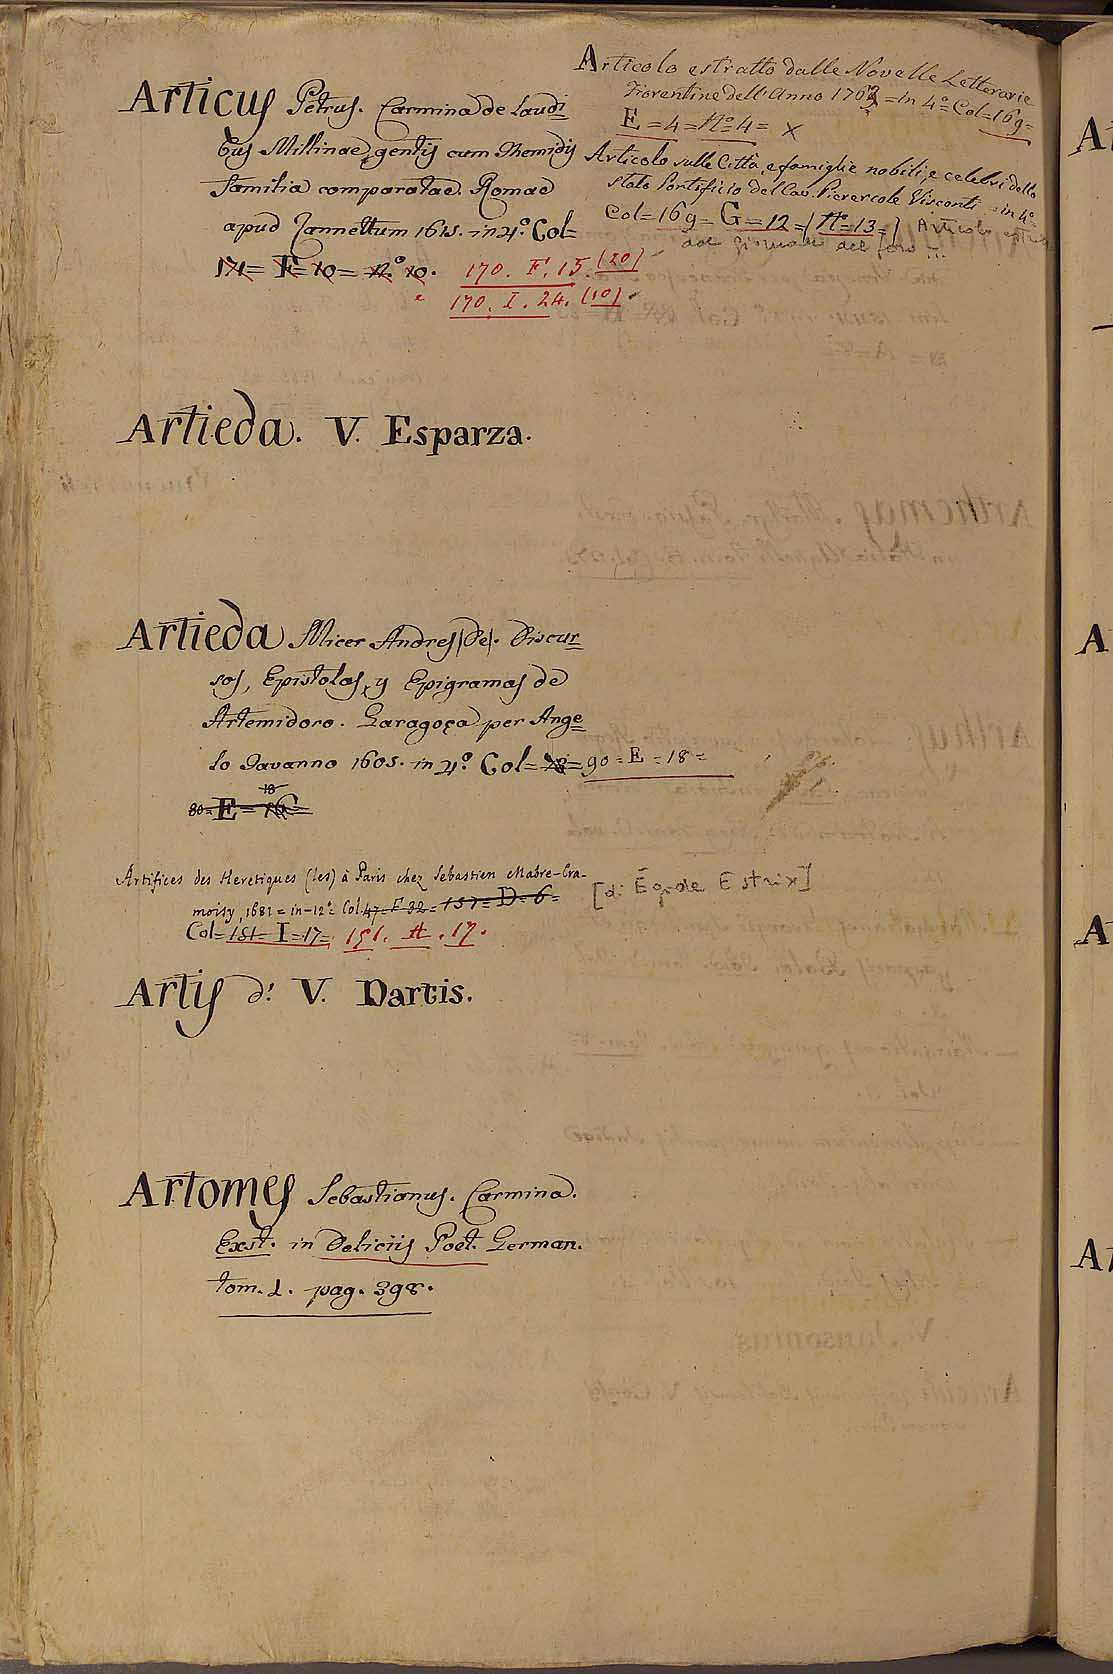 Articus Petrus. Carmina de Laudi
bus Millinae gentis cum Themidis
familia comparatae. Romae
apud Jannettum 1615. in 4.° Col=
171= F= 10= n.° 10. 170. F. 15. (20)
170. I. 24. (10)
Articolo estratto dalle Novelle Letterarie
Fiorentine dell'Anno 1762 = in 4° Col=169=
E=4=N°=4= X
Articolo sulle Città, e famiglie nobili, e celebri dello
stato Pontificio del Cav. Pierercole Visconti = in 4°
Col=169=G=12=(N°=13=) Articolo
dal giornale del foro...
Artieda. V. Esparza.
Artieda Micer Andres (De). Discur
sos, Epistolas, y Epigramas de
Artemidoro. Çaragoça per Ange
lo Tavanno 1605. in 4.° Col= =90=E=18=
18
80=E=
Artifices des Heretiques (les) à Paris chez Sebastien Mabre-Cra-
moisy, 1681=in-12° Col.47=F 32=157=D=6= [d: Egide Estrix]
Col=151=I=17= 151. H. 17.
Artis d'. V. Dartis.
Artomes Sebastianus. Carmina.
Exst. in Deliciis Poet. German.
tom. 1. pag. 398.